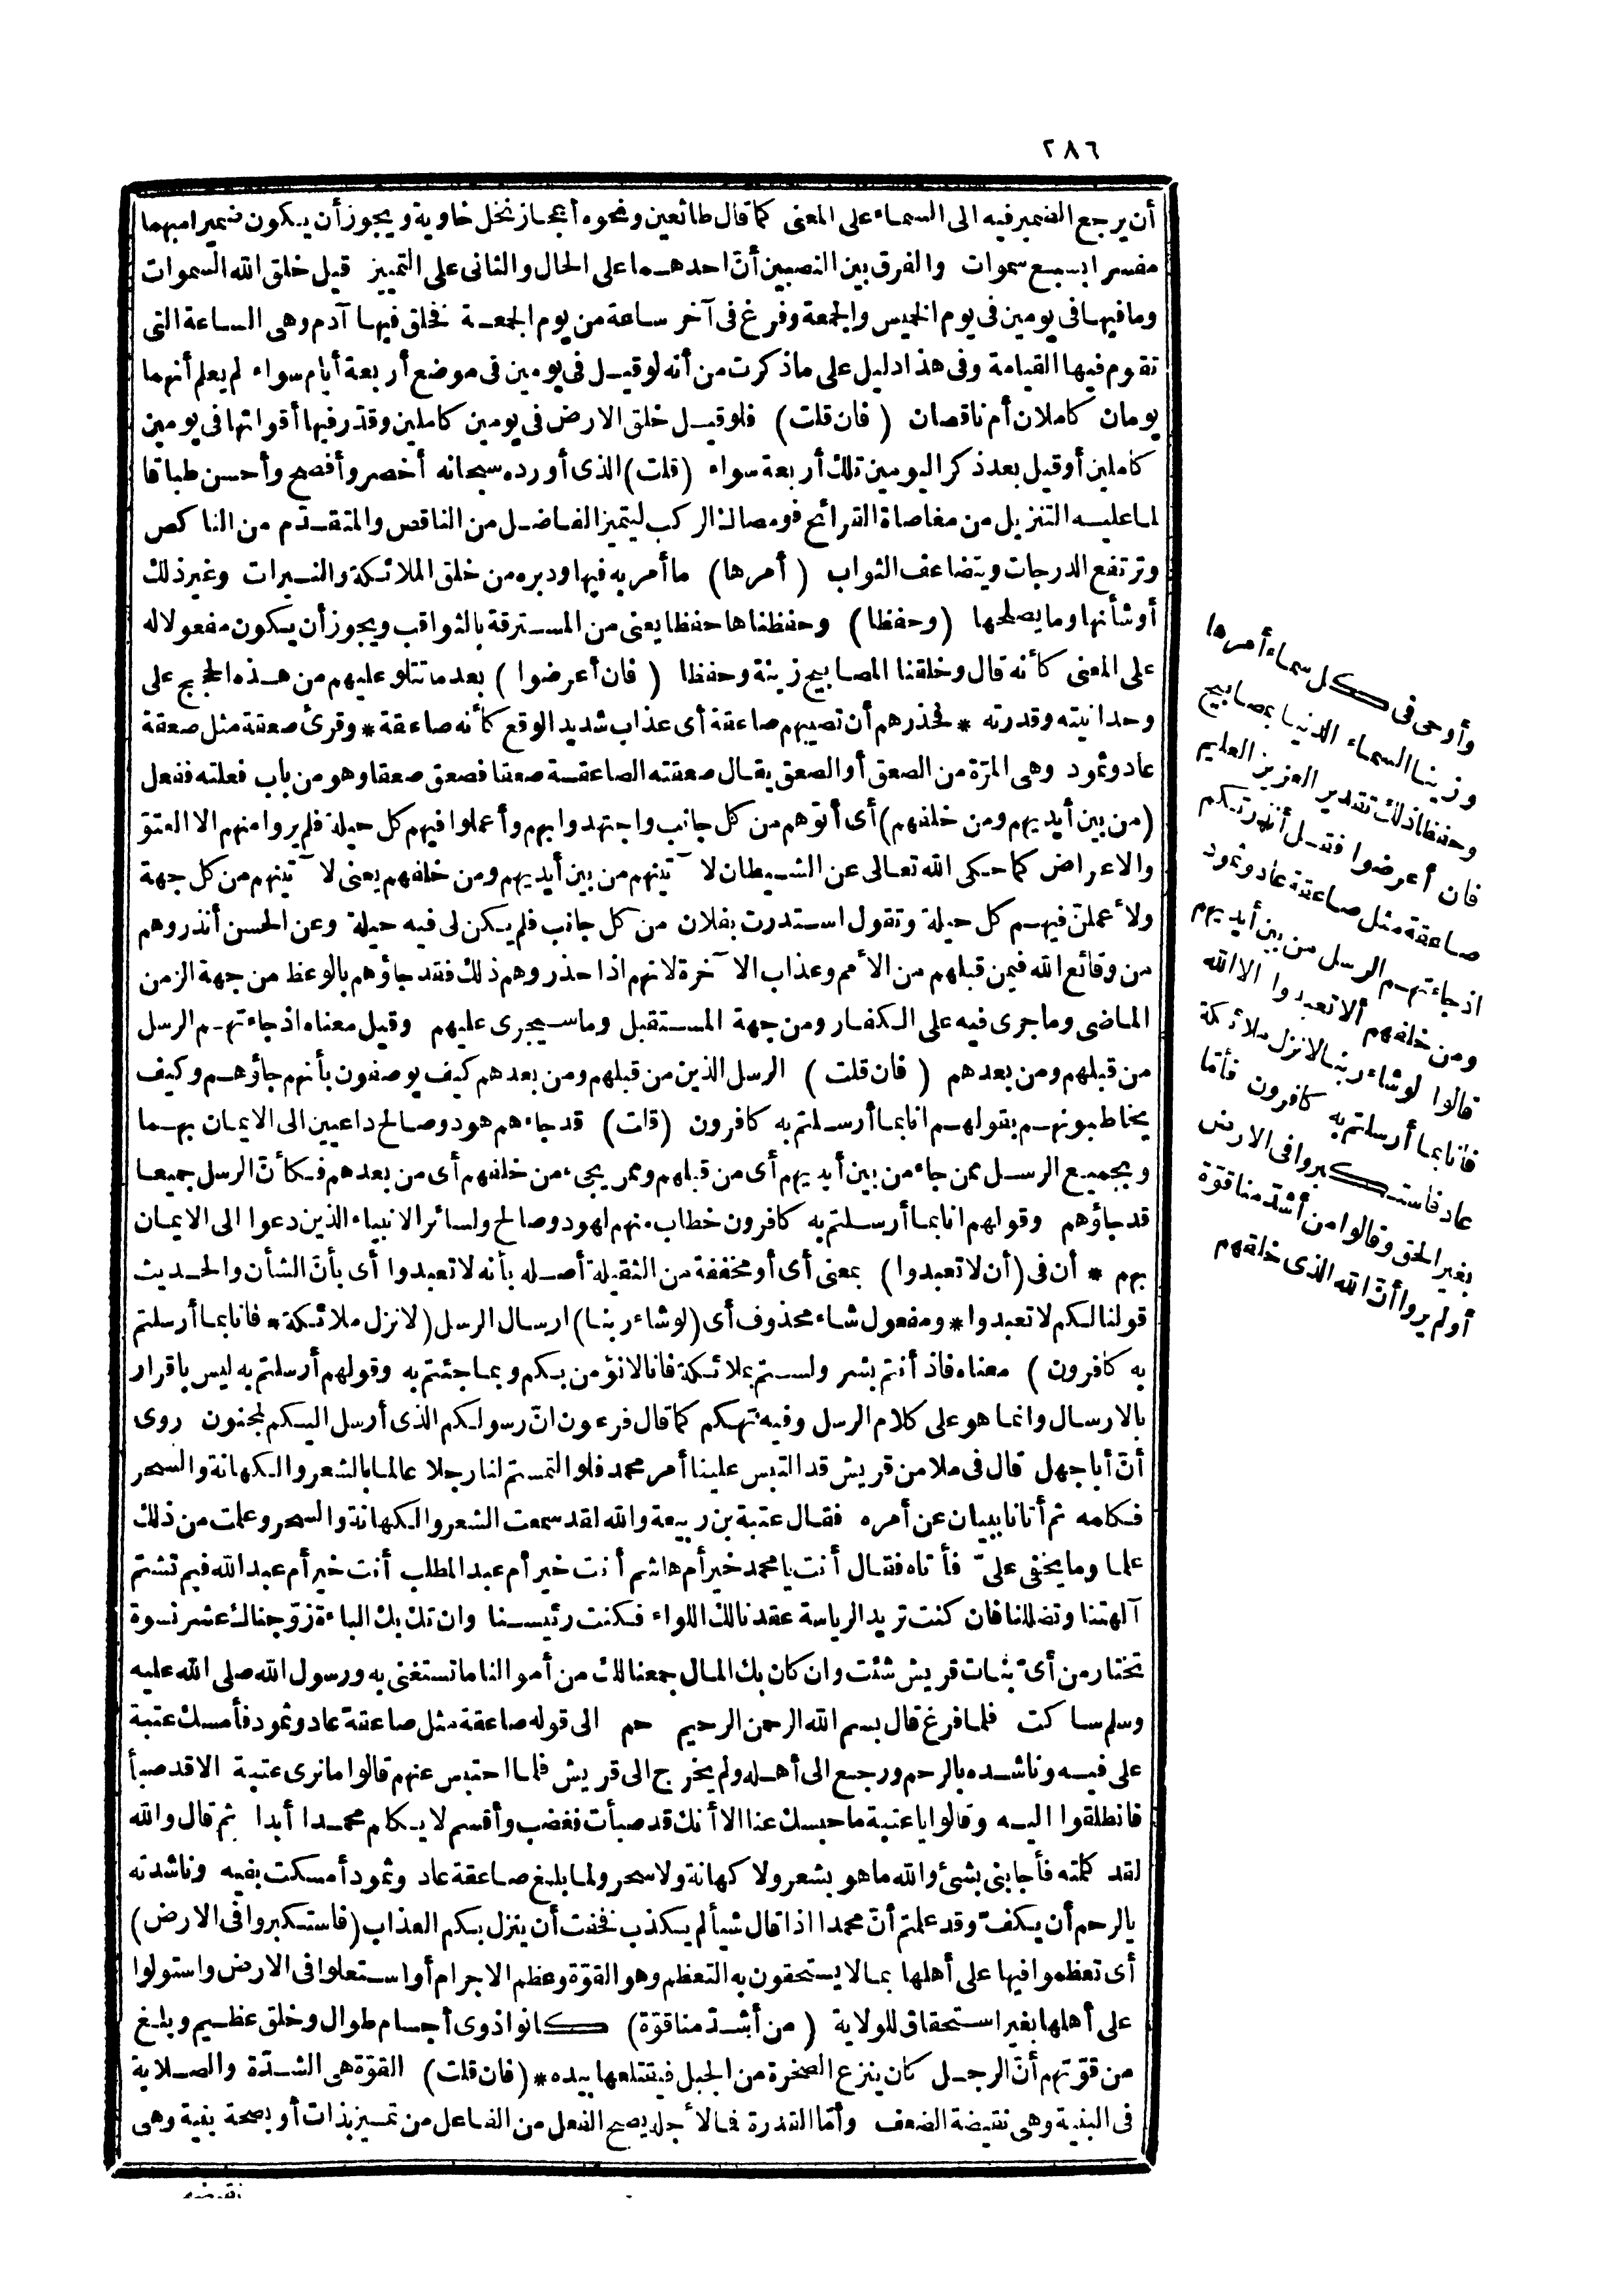 ٢٨٦
أن يرجع الضمير فيه الى السماء على المعنى كما قال طائعين ونحوه أعجاز نخل خاوية ويجوز أن يكون ضميرا مبهما
مفسرا بسبع سموات والفرق بين النصبين أنّ احدهما على الحال والثانى على التمييز قيل خلق الله السموات
وما فيها فى يومين فى يوم الخميس والجمعة وفرغ فى آخر ساعة من يوم الجمعة فخلق فيها آدم وهى الساعة التى
تقوم فيها القيامة وفى هذا دليل على ما ذكرت من أنه لو قيل فى يومين فى موضع أربعة أيام سواء لم يعلم أنهما
يومان كاملان أم ناقصان (فان قلت) فلو قيل خلق الارض فى يومين كاملين وقدّر فيها أقواتها فى يومين
كاملين أو قيل بعد ذكر اليومين تلك أربعة سواء (قلت) الذى أورده سبحانه أخصر وأفصح وأحسن طباقا
لما عليه التنزيل من مغاصاة القرائح ومصاك الركب ليتميز الفاضل من الناقص والمتقدّم من الناكص
وترتفع الدرجات ويتضاعف الثواب (أمرها) ما أمر به فيها ودبره من خلق الملائكة والنيرات وغير ذلك
أو شأنها وما يصلحها (وحفظا) وحفظناها حفظا يعنى من المسترقة بالثواقب ويجوز أن يكون مفعولا له
على المعنى كأنه قال وخلقنا المصابيح زينة وحفظا (فان أعرضوا) بعد ما تتلو عليهم من هذه الحجج على
وحدانيته وقدرته * فحذرهم أن تصيبهم صاعقة أى عذاب شديد الوقع كأنه صاعقة * وقرئ صعقة مثل صعقة
عاد وثمود وهى المرّة من الصعق أو الصعق يقال صعقته الصاعقة صعقا فصعق صعقا وهو من باب فعلته ففعل
(من بين أيديهم ومن خلفهم) أى أتوهم من كل جانب واجتهدوا بهم وأعملوا فيهم كل حيلة فلم يروا منهم الا العتوّ
والاعراض كما حكى الله تعالى عن الشيطان لآتينهم من بين أيديهم ومن خلفهم يعنى لآتينهم من كل جهة
ولأعملنّ فيهم كل حيلة وتقول استدرت بفلان من كل جانب فلم يكن لى فيه حيلة وعن الحسن أنذروهم
من وقائع الله فيمن قبلهم من الأمم وعذاب الآخرة لانهم اذا حذروهم ذلك فقد جاؤهم بالوعظ من جهة الزمن
الماضى وما جرى فيه على الكفار ومن جهة المستقبل وما سيجرى عليهم وقيل معناه اذ جاءتهم الرسل
من قبلهم ومن بعدهم (فان قلت) الرسل الذين من قبلهم ومن بعدهم كيف يوصفون بأنهم جاؤهم وكيف
يخاطبونهم بقولهم انا بما أرسلتم به كافرون (قلت) قد جاءهم هود وصالح داعيين الى الايمان بهما
وبجميع الرسل ممن جاء من بين أيديهم أى من قبلهم وممن يجىء من خلفهم أى من بعدهم فكأنّ الرسل جميعا
قد جاؤهم وقولهم انا بما أرسلتم به كافرون خطاب منهم لهود وصالح ولسائر الانبياء الذين دعوا الى الايمان
بهم * أن فى (أن لا تعبدوا) بمعنى أى أو مخففة من الثقيلة أصله بأنه لا تعبدوا أى بأنّ الشأن والحديث
قولنا لكم لا تعبدوا * ومفعول شاء محذوف أى (لو شاء ربنا) ارسال الرسل (لانزل ملائكة * فانا بما أرسلتم
به كافرون) معناه فاذ أنتم بشر ولستم بملائكة فانا لا نؤمن بكم وبما جئتم به وقولهم أرسلتم به ليس باقرار
بالارسال وانما هو على كلام الرسل وفيه تهكم كما قال فرعون انّ رسولكم الذى أرسل اليكم لمجنون روى
أنّ أبا جهل قال فى ملا من قريش قد التبس علينا أمر محمد فلو التمستم لنا رجلا عالما بالشعر والكهانة والسحر
فكلمه ثم أتانا ببيان عن أمره فقال عتبة بن ربيعة والله لقد سمعت الشعر والكهانة والسحر وعلمت من ذلك
علما وما يخفى علىّ فأتاه فقال أنت يا محمد خير أم هاشم أنت خير أم عبد المطلب أنت خير أم عبد الله فيم تشتم
آلهتنا وتضللنا فان كنت تريد الرياسة عقدنا لك اللواء فكنت رئيسنا وان تك بك الباءة زوّجناك عشر نسوة
تختار من أىّ بنات قريش شئت وان كان بك المال جمعنا لك من أموالنا ما تستغنى به ورسول الله صلى الله عليه
وسلم ساكت فلما فرغ قال بسم الله الرحمن الرحيم حم الى قوله صاعقة مثل صاعقة عاد وثمود فأمسك عتبة
على فيه وناشده بالرحم ورجع الى أهله ولم يخرج الى قريش فلما احتبس عنهم قالوا ما نرى عتبة الا قد صبأ
فانطلقوا اليه وقالوا يا عتبة ما حبسك عنا الا أنك قد صبأت فغضب وأقسم لا يكلم محمدا أبدا ثم قال والله
لقد كلمته فأجابنى بشئ والله ما هو بشعر ولا كهانة ولا سحر ولما بلغ صاعقة عاد وثمود أمسكت بفيه وناشدته
بالرحم أن يكفّ وقد علمتم أنّ محمدا اذا قال شيأ لم يكذب فخفت أن ينزل بكم العذاب (فاستكبروا فى الارض)
أى تعظموا فيها على أهلها بما لا يستحقون به التعظم وهو القوّة وعظم الاجرام أو استعلوا فى الارض واستولوا
على أهلها بغير استحقاق للولاية (من أشدّ منا قوّة) كانوا ذوى أجسام طوال وخلق عظيم وبلغ
من قوّتهم أنّ الرجل كان ينزع الصخرة من الجبل فيقتلعها بيده * (فان قلت) القوّة هى الشدّة والصلابة
فى البنية وهى نقيضة الضعف وأمّا القدرة فما لأجله يصح الفعل من الفاعل من تميز بذات أو بصحة بنية وهى
وأوحى فى كل سماء أمرها
وزينا السماء الدنيا بمصابيح
وحفظا ذلك تقدير العزيز العليم
فان أعرضوا فقل أنذرتكم
صاعقة مثل صاعقة عاد وثمود
اذ جاءتهم الرسل من بين أيديهم
ومن خلفهم ألا تعبدوا الا الله
قالوا لو شاء ربنا لانزل ملائكة
فانا بما أرسلتم به كافرون فأمّا
عاد فاستكبروا فى الارض
بغير الحق وقالوا من أشدّ منا قوّة
أولم يروا أنّ الله الذى خلقهم